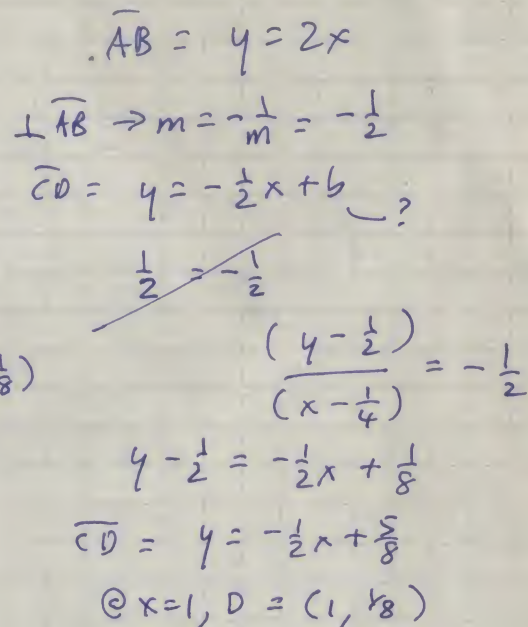 . A̅B̅ = y = 2x
⊥ A̅B̅ → m = -1/m = -1/2
C̅D̅ = y = -1/2 x + b ?
1/2 = -1/2
1/8)
(y - 1/2) / (x - 1/4) = -1/2
y - 1/2 = -1/2 x + 1/8
C̅D̅ = y = -1/2 x + 5/8
@ x=1, D = (1, 1/8)